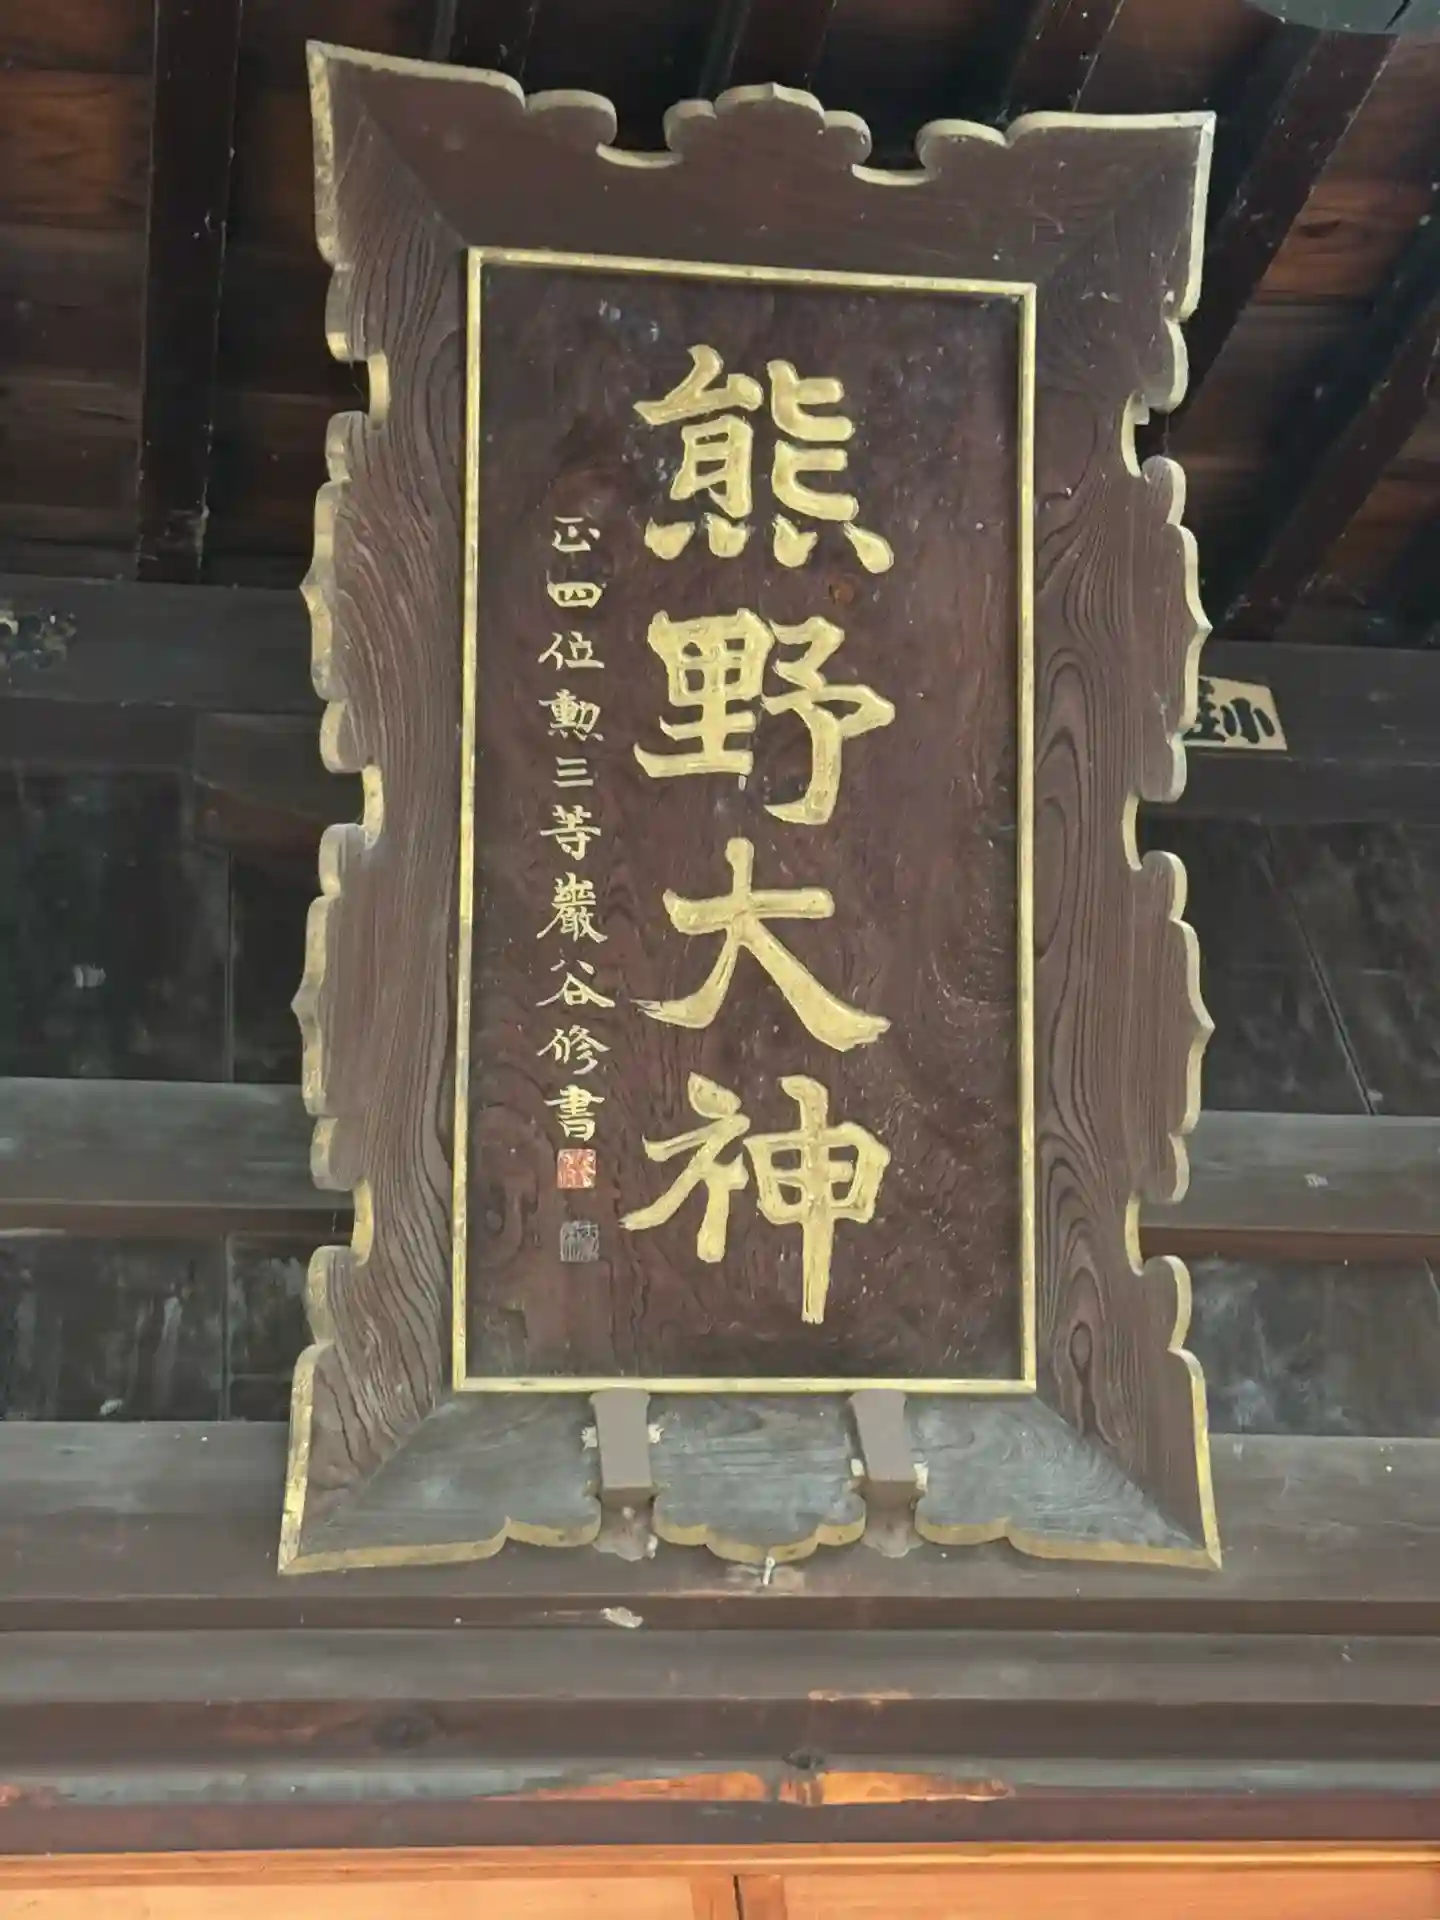 熊野大神
正四位勲三等巖谷修書